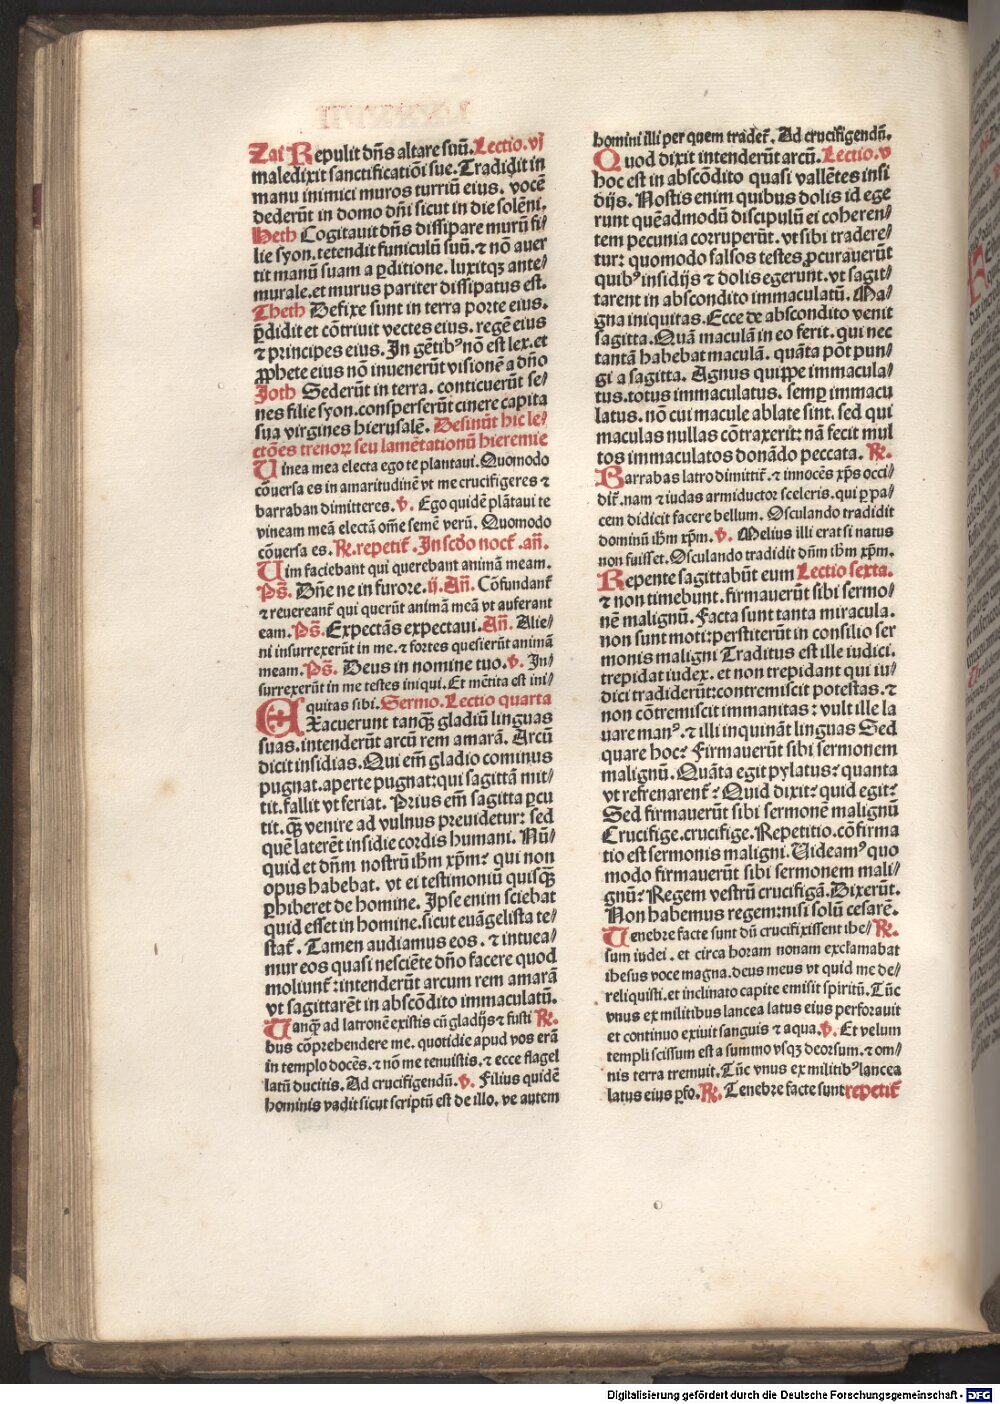 Zai Repulit dñs altare suũ. Lectio. vj
maledixit sanctificatiõi sue. Tradidit in
manu inimici muros turriũ eius. vocẽ
dederũt in domo dñi sicut in die solẽni.
Heth Cogitauit dñs dissipare murũ fi/
lie syon. tetendit funiculũ suũ. ⁊ nõ auer
tit manũ suam a ꝑditione. luxitqꝫ ante/
murale. et murus pariter dissipatus est.
Theth Defixe sunt in terra porte eius.
ꝑdidit et cõtriuit vectes eius. regẽ eius
⁊ principes eius. In gẽtibꝰ nõ est lex. et
ꝓphete eius nõ inuenerũt visionẽ a dño
Joth Sederũt in terra. conticuerũt se/
nes filie syon. consperserũt cinere capita
sua virgines hierusalẽ. Desinũt hic le/
ctões trenoꝝ seu lamẽtationũ hieremie
Uinea mea electa ego te plantaui. Quomodo
cõuersa es in amaritudinẽ vt me crucifigeres ⁊
barraban dimitteres. v. Ego quidẽ plãtaui te
vineam meã electã om̃e semẽ verũ. Quomodo
cõuersa es. R̃. repetit̃. In scďo noct̃. añ.
Uim faciebant qui querebant animã meam.
Pš. Dñe ne in furore. ij. Añ. Cõfundant̃
⁊ reuereant̃ qui querũt animã meã vt auferant
eam. Pš. Expectãs expectaui. Añ. Alie/
ni insurrexerũt in me. ⁊ fortes quesierũt animã
meam. Pš. Deus in nomine tuo. v. In/
surrexerũt in me testes iniqui. Et mẽtita est ini/
quitas sibi. Sermo. Lectio quarta
EXacuerunt tanqꝫ gladiũ linguas
suas. intenderũt arcũ rem amarã. Arcũ
dicit insidias. Qui eñi gladio cominus
pugnat. aperte pugnat: qui sagittã mit/
tit. fallit vt feriat. Prius eñi sagitta ꝑcu
tit. qꝫ venire ad vulnus preuidetur: sed
quẽ laterẽt insidie cordis humani. Nũ/
quid et dñm nostrũ ihm̃ xp̃m? qui non
opus habebat. vt ei testimoniũ quisqꝫ
ꝑhiberet de homine. Ipse enim sciebat
quid esset in homine. sicut euãgelista te/
stat̃. Tamen audiamus eos. ⁊ intuea/
mur eos quasi nesciẽte dño facere quod
moliunt̃: intenderũt arcum rem amarã
vt sagittarẽt in abscõdito immaculatũ.
Tanqꝫ ad latronẽ existis cũ gladijs ⁊ fusti R̃.
bus cõprehendere me. quotidie apud vos erã
in templo docẽs. ⁊ nõ me tenuistis. ⁊ ecce flagel
latũ ducitis. Ad crucifigendũ. v. Filius quidẽ
hominis vadit sicut scriptũ est de illo. ve autem
homini illi per quem tradet̃. Ad crucifigendũ.
Quod dixit intenderũt arcũ. Lectio. v
hoc est in abscõdito quasi vallẽtes insi
dijs. Nostis enim quibus dolis id ege
runt quẽadmodũ discipulũ ei coheren/
tem pecunia corruperũt. vt sibi tradere/
tur: quomodo falsos testes ꝓcurauerũt
quibꝰ insidijs ⁊ dolis egerunt. vt sagit/
tarent in abscondito immaculatũ. Ma/
gna iniquitas. Ecce de abscondito venit
sagitta. Quã maculã in eo ferit. qui nec
tantã habebat maculã. quãta põt pun/
gi a sagitta. Agnus quippe immacula/
tus. totus immaculatus. semꝑ immacu
latus. nõ cui macule ablate sint. sed qui
maculas nullas cõtraxerit: nã fecit mul
tos immaculatos donãdo peccata. R̃.
Barrabas latro dimittit̃. ⁊ innocẽs xp̃s occi/
dit̃. nam ⁊ iudas armiductor sceleris. qui ꝑ pa/
cem didicit facere bellum. Osculando tradidit
dominũ ihm̃ xp̃m. v. Melius illi erat si natus
non fuisset. Osculando tradidit dñm ihm̃ xp̃m.
Repente sagittabũt eum Lectio sexta.
⁊ non timebunt. firmauerũt sibi sermo/
nẽ malignũ. Facta sunt tanta miracula.
non sunt moti: perstiterũt in consilio ser
monis maligni Traditus est ille iudici.
trepidat iudex. et non trepidant qui iu/
dici tradiderũt: contremiscit potestas. ⁊
non cõtremiscit immanitas: vult ille la
uare manꝰ. ⁊ illi inquinãt linguas Sed
quare hoc? Firmauerũt sibi sermonem
malignũ. Quãta egit pylatus? quanta
vt refrenarent? Quid dixit? quid egit?
Sed firmauerũt sibi sermonẽ malignũ
Crucifige. crucifige. Repetitio. cõfirma
tio est sermonis maligni. Uideamꝰ quo
modo firmauerũt sibi sermonem mali/
gnũ? Regem vestrũ crucifigã. Dixerũt.
Non habemus regem: nisi solũ cesarẽ.
Tenebre facte sunt dũ crucifixissent ihe/ R̃.
sum iudei. et circa horam nonam exclamabat
ihesus voce magna. deus meus vt quid me de/
reliquisti. et inclinato capite emisit spiritũ. Tũc
vnus ex militibus lancea latus eius perforauit
et continuo exiuit sanguis ⁊ aqua. v. Et velum
templi scissum est a summo vsqꝫ deorsum. ⁊ om/
nis terra tremuit. Tũc vnus ex militibꝰ lancea
latus eius ꝑfo. R̃. Tenebre facte sunt repetit̃
Digitalisierung gefördert durch die Deutsche Forschungsgemeinschaft - DFG